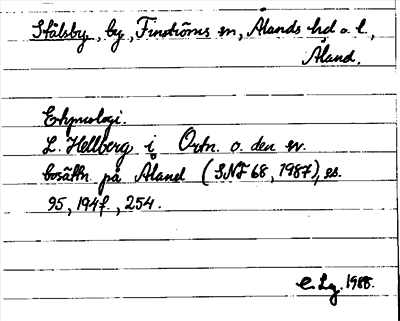 Stålsby, by, Finströms sn, Ålands hd o. l.,
Åland.
Etymologi.
L. Hellberg i Ortn. o. den sv.
bosättn. på Åland (SNF 68, 1987), ss.
95, 194f., 254.
C. Lg. 1988.